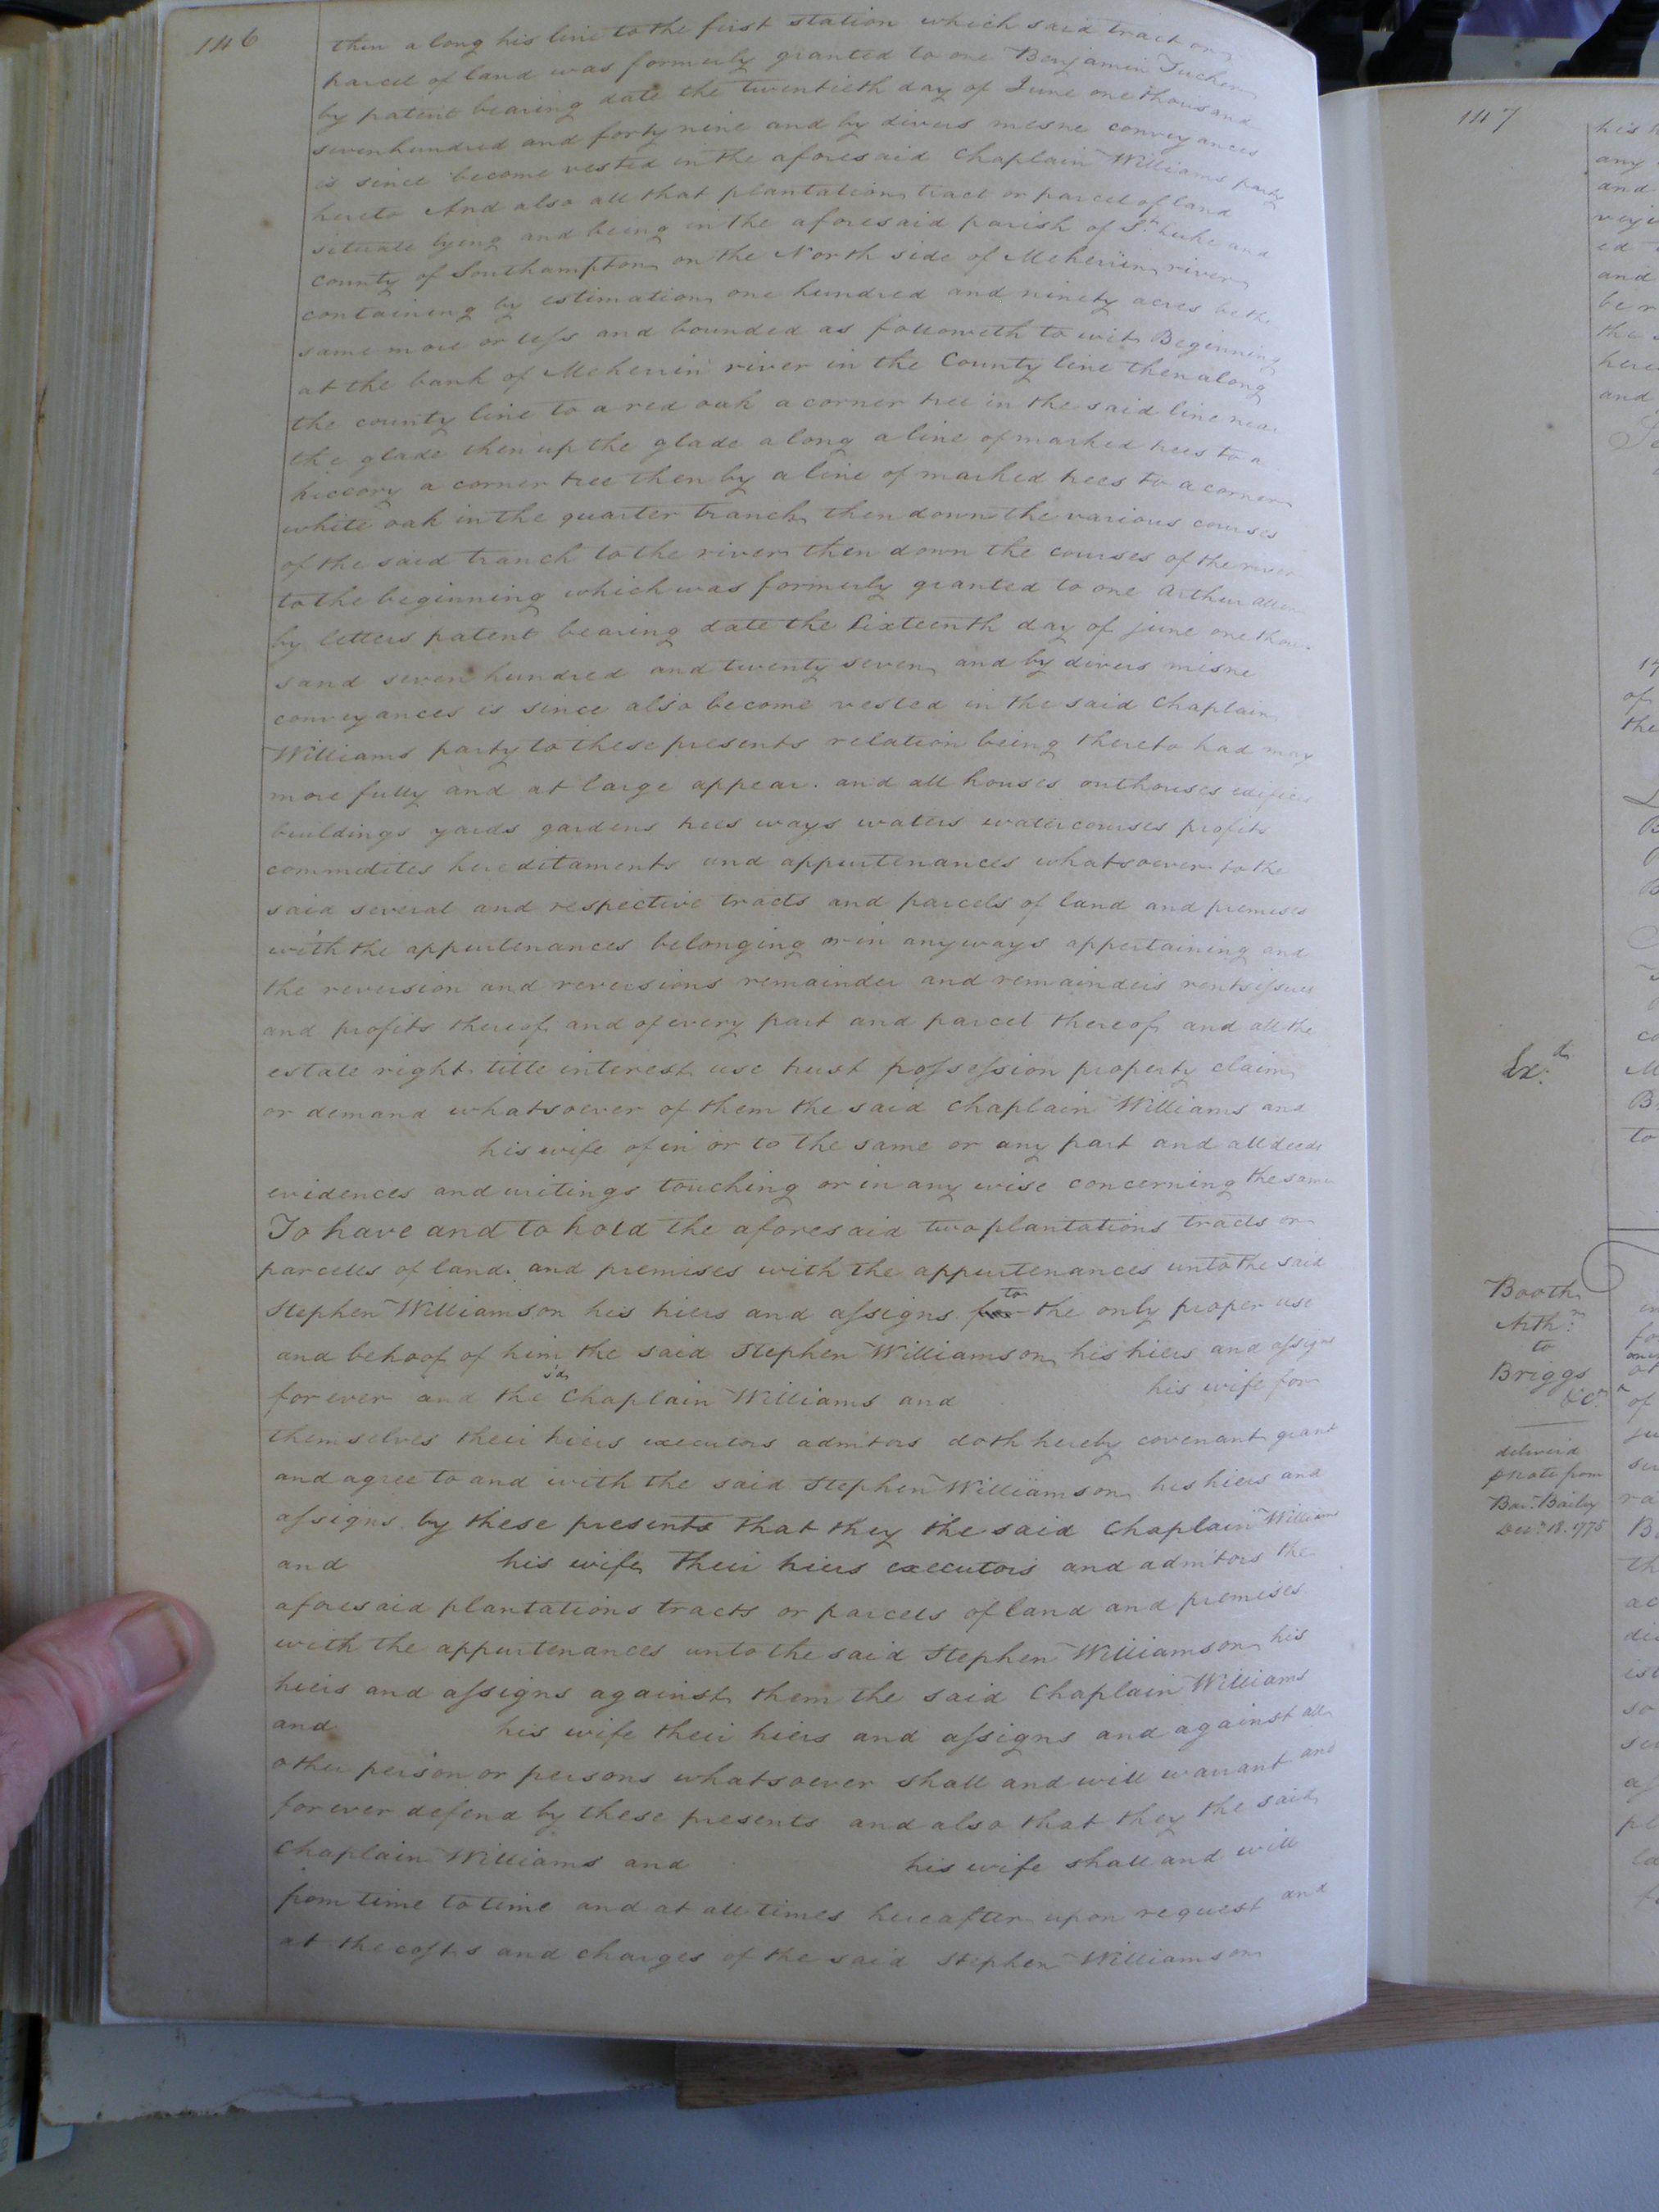 146
then along his line to the first station which said tract or
parcel of land was formerly granted to one Benjamin Tucker
by patent bearing date the twentieth day of June one thousand
sevenhundred and forty nine and by divers mesne conveyances
is since become vested in the aforesaid Chaplain Williams party
hereto And also all that plantation tract or parcel of land
situate lying and being in the aforesaid parish of St. Luke and
County of Southampton on the North side of Meherrin river
containing by estimation one hundred and ninety acres be the
same more or less and bounded as followeth to wit Beginning
at the bank of Meherrin river in the County line then along
the county line to a red oak a corner tree in the said line near
the glade then up the glade along a line of marked trees to a
hiccory a corner tree then by a line of marked trees to a corner
white oak in the quarter branch then down the various courses
of the said branch to the river then down the courses of the river
to the beginning which was formerly granted to one Arthur Allen
by letters patent bearing date the Sixteenth day of june one thou-
sand seven hundred and twenty seven and by divers misne
conveyances is since also become vested in the said Chaplain
Williams party to these presents relation being thereto had may
more fully and at large appear. and all houses outhouses edifices
buildings yards gardens trees ways waters watercourses profits
commodites hereditaments and appurtenances whatsoever to the
said several and respective tracts and parcels of land and premises
with the appurtenances belonging or in anyways appertaining and
the reversion and reversions remainder and remainders rents issues
and profits thereof and of every part and parcel thereof and all the
estate right title interest use trust possession property claim
or demand whatsoever of them the said Chaplain Williams and
his wife of in or to the same or any part and all deeds
evidences and writings touching or in any wise concerning the same
To have and to hold the aforesaid two plantations tracts or
parcells of land and premises with the appurtenances unto the said
Stephen Williamson his hiers and assigns for to the only proper use
and behoof of him the said Stephen Williamson his hiers and assigns
forever and the sd. Chaplain Williams and his wife for
themselves their hiers executors admtors doth hereby covenant grant
and agree to and with the said Stephen Williamson his hiers and
assigns by these presents that they the said Chaplain Williams
and his wife their hiers executors and admtors the
aforesaid plantations tracts or parcels of land and premises
with the appurtenances unto the said Stephen Williamson his
hiers and assigns against them the said Chaplain Williams
and his wife their hiers and assigns and against all
other person or persons whatsoever shall and will warrant and
forever defend by these presents and also that they the said
Chaplain Williams and his wife shall and will
from time to time and at all times hereafter upon request and
at the costs and charges of the said Stephen Williamson
147
any
and
and
be
the
and
of
the
Ex.d
to
Booth
Arth.r
to
Briggs
&c.a
deliverd
Bar. Bailey
Decr. 18. 1775